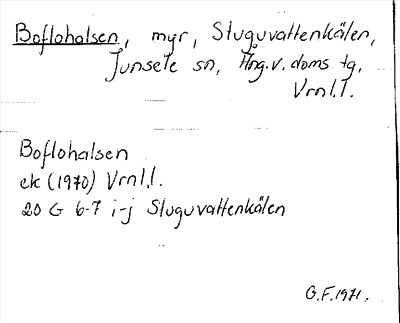 Boflohalsen, myr, Stuguvattenkälen,
Junsele sn, Ång.v. doms tg,
Vrnl.l.
Boflohalsen
ek (1970) Vrnl.l.
20 G 6-7 i-j Stuguvattenkälen
G.F. 1971.